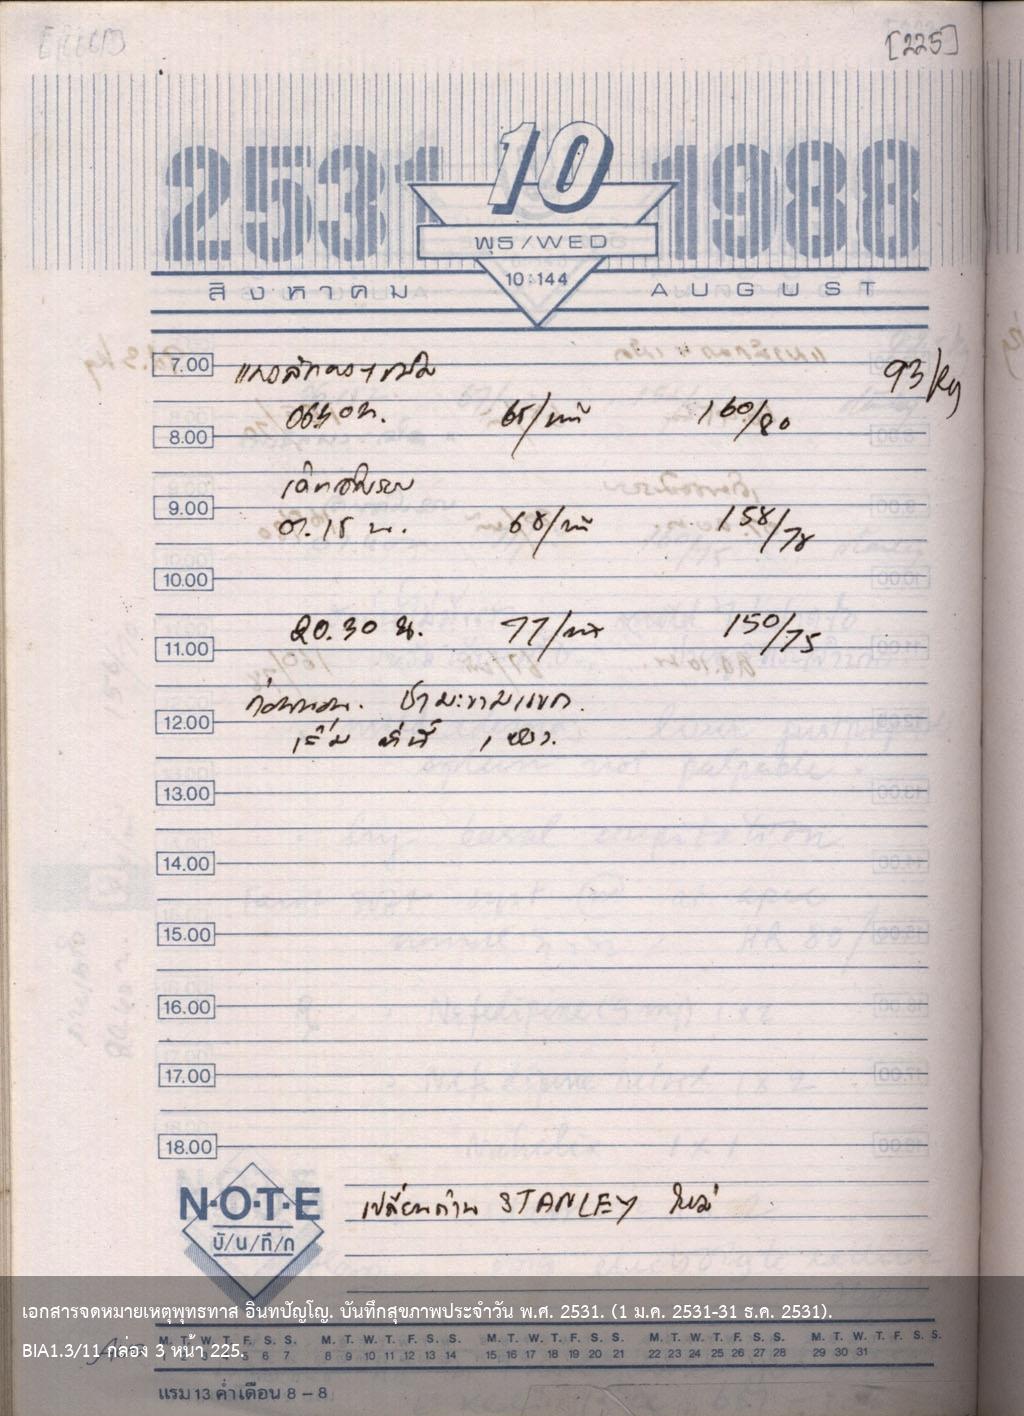 [225]
2531 10 1988
พุธ/WED
10-144
สิงหาคม AUGUST
7.00
93 kg
06.40 น. 65/นาที 160/80
8.00
9.00
07.15 น. 68/นาที 158/78
10.00
20.30 น. 77/นาที 150/75
11.00
ก่อนนอน. ชามะขามแขก.
12.00
เริ่ม
13.00
14.00
15.00
16.00
17.00
18.00
N·O·T·E
บั/น/ทึ/ก
เปลี่ยนถ่าน STANLEY ใหม่
เอกสารจดหมายเหตุพุทธทาส อินทปัญโญ. บันทึกสุขภาพประจำวัน พ.ศ. 2531. (1 ม.ค. 2531-31 ธ.ค. 2531).
M. T. W. T. F. S. S. M. T. W. T. F. S. S. M. T. W. T. F. S. S. M. T. W. T. F. S. S. M. T. W. T. F. S. S.
BIA1.3/11 กล่อง 3 หน้า 225.
1 2 3 4 5 6 7 8 9 10 11 12 13 14 15 16 17 18 19 20 21 22 23 24 25 26 27 28 29 30 31
แรม 13 ค่ำ เดือน 8 – 8